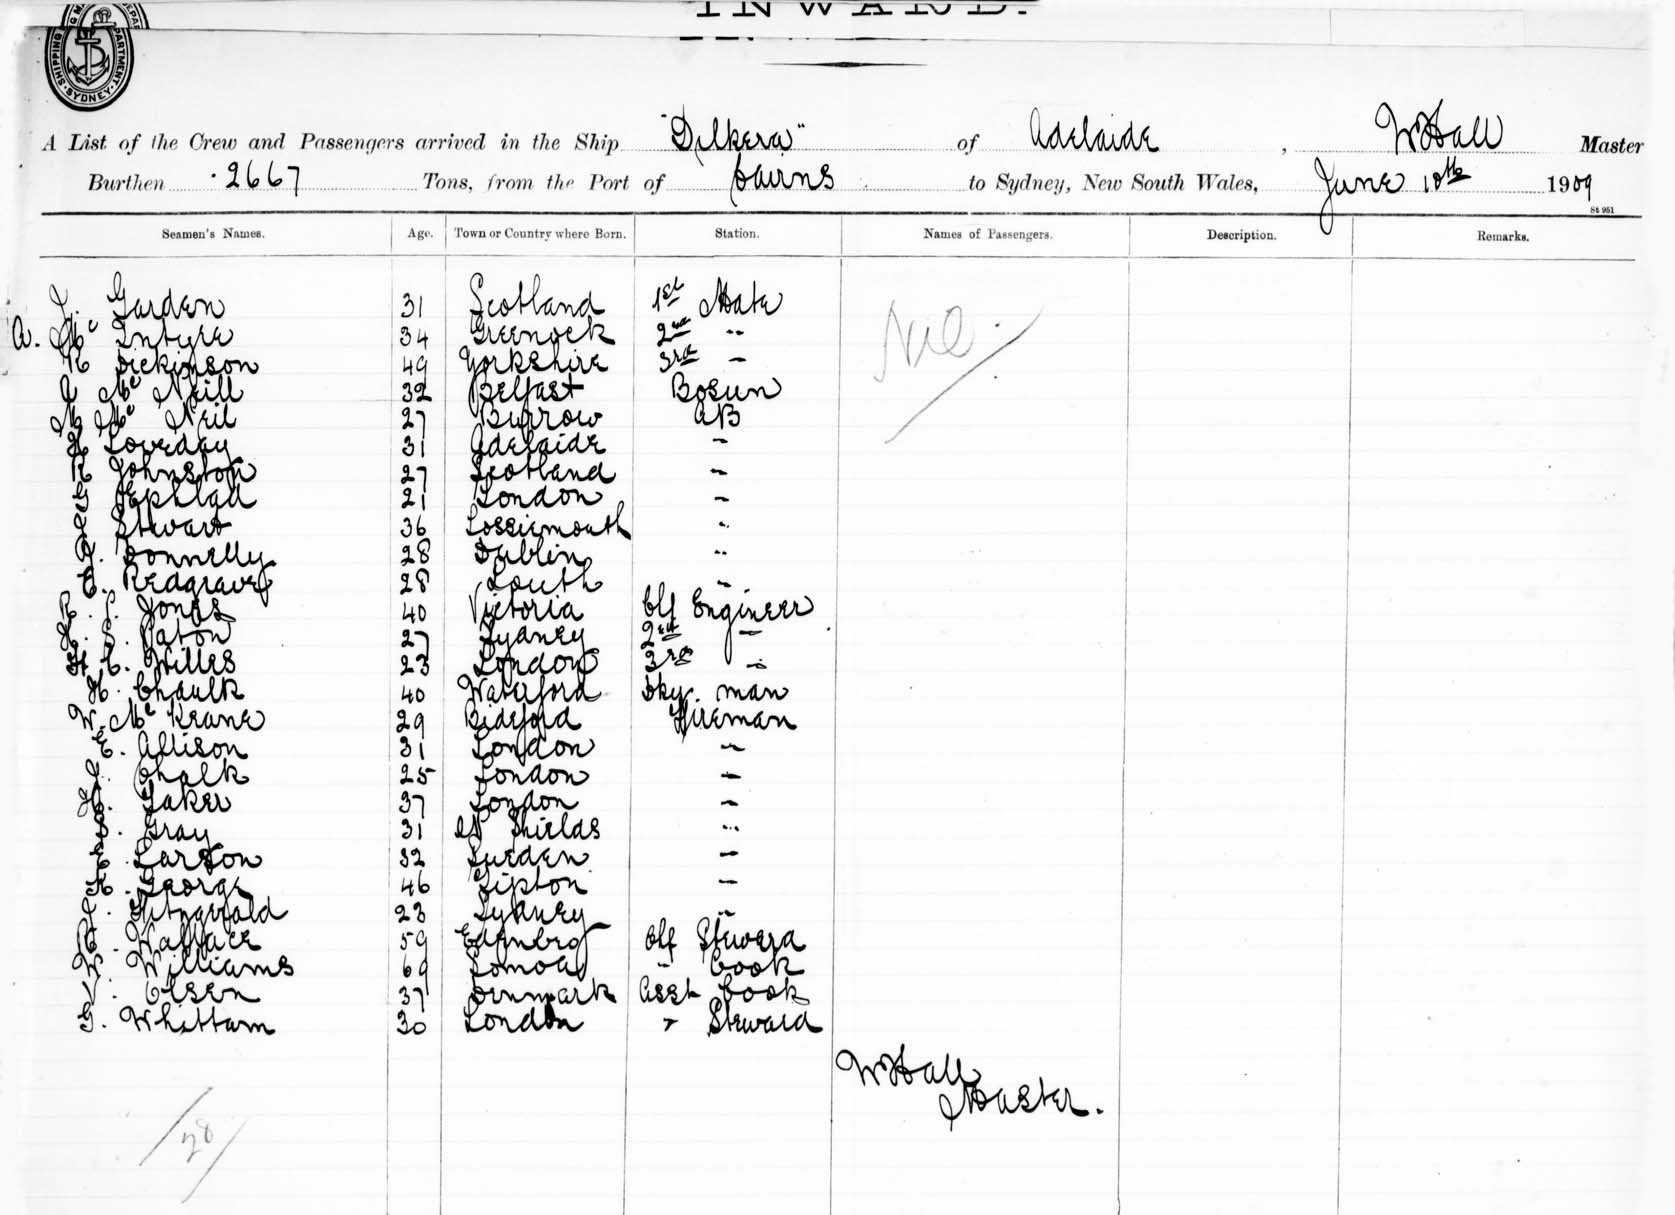 INWARD.
SHIPPING MA DEPARTMENT · SYDNEY ·
A List of the Crew and Passengers arrived in the Ship "Dilkera" of Adelaide, W Hall Master
Burthen 2667 Tons, from the Port of Cairns to Sydney, New South Wales, June 10th 1909
St 951
Seamen's Names. Age. Town or Country where Born. Station. Names of Passengers. Description. Remarks.
J. Garden 31 Scotland 1st Mate
A. Mc Intyre 34 Greenock 2nd "
R Dickinson 49 Yorkshire 3rd " Nil
A Mc Neill 32 Belfast Bosun
M Mc Neil 27 Burrow AB
Loveday 31 Adelaide "
R Johnston 27 Scotland "
G 21 London "
J Stewart 36 Lossiemouth "
J. Donnelly 28 Dublin "
C. Redgrave 28 Louth "
R. S. Jones 40 Victoria Clf Engineer
S. Paton 27 Sydney 2nd "
H. C. Willes 23 London 3rd "
H. Chaulk 40 Waterford Dky. man
W. Mc Keane 29 Bideford Fireman
E. Allison 31 London "
J. Chalk 25 London "
H. 37 London "
Gray 31 N Shields "
Larson 32 Sweden "
H. George 46 Tipton "
J. Fitzgerald 23 Sydney "
R. Wallace 59 Edenberg Clf Steward
W. Williams 69 Somoa " Cook
V. Olsen 37 Denmark Asst Cook
G. Whittam 30 London " Steward
W Hall
Master.
28